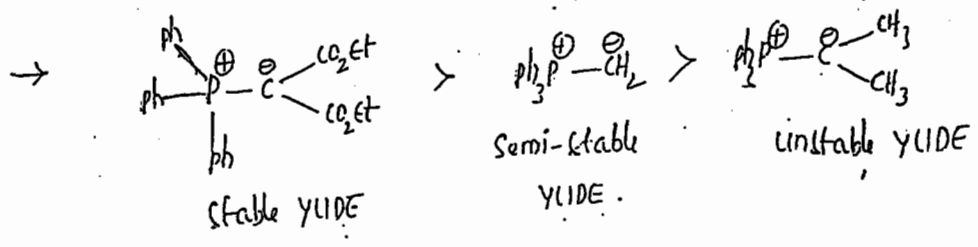 → Ph Ph Ph P⊕ – C⊖ CO2Et CO2Et > Ph3P⊕ – CH2⊖ > Ph3P⊕ – C⊖ CH3 CH3
stable YLIDE
Semi-stable
YLIDE.
Unstable YLIDE